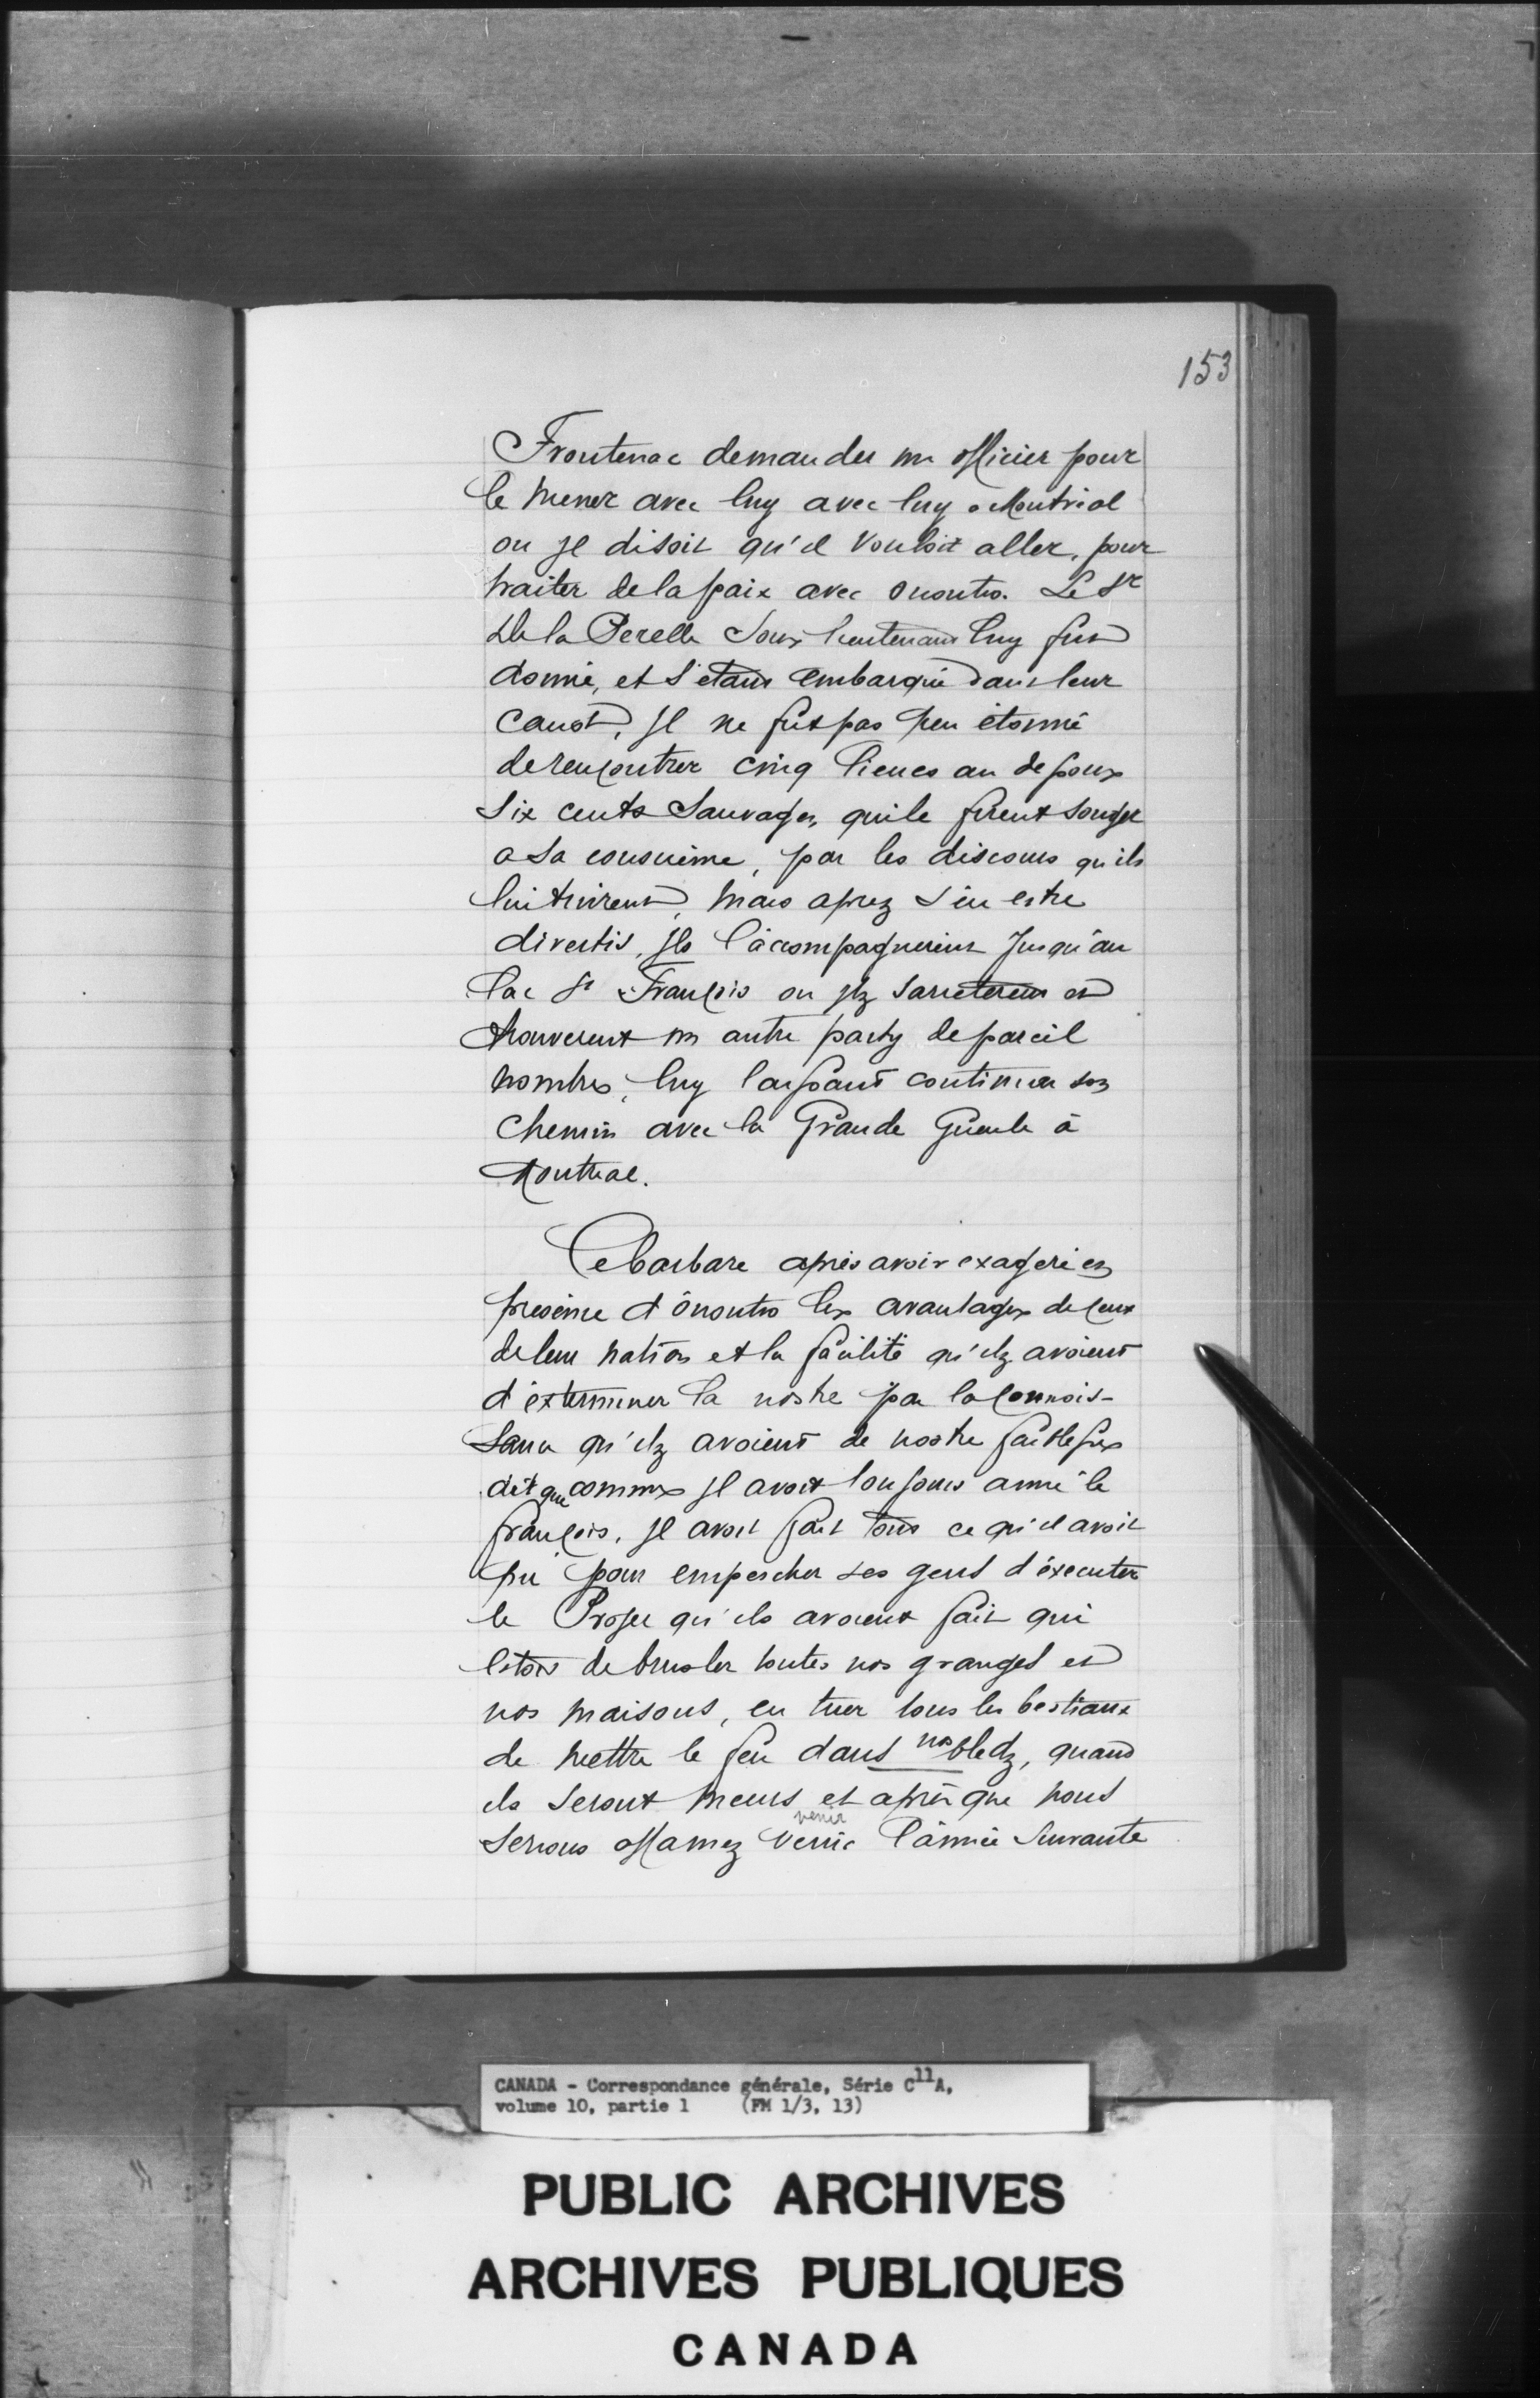 153
Frontenac demander un officier pour
le mener avec luy avec luy a Montréal
ou Jl disoit qu'il vouloit aller, pour
traiter de la paix avec Onontio. Le Sr
De la Perelle Sous lieutenant luy fut
donné, et s'étant embarqué dans leur
canot, Jl ne fut pas peu étonné
de rencontrer cinq lieues au dessous
Six cents Sauvages, qui le firent songer
a sa conscience, par les discours qu'ils
lui tinrent, mais aprez s'en estre
divertis, Jls l'accompagnerent Jusqu'au
lac St François ou Jlz sarreterent et
trouverent un autre party de pareil
nombre, luy laissant continuer son
chemin avec la Grande Gueule à
Montreal.
Ce barbare après avoir exageré en
presence d'ônontio les avantages de ceux
de leur nation et la facilité qu'ilz avoient
d'éxterminer la nostre par la connois-
sance qu'ilz avoient de nostre faiblesse
dit que comme Jl avoit toujours aimé le
françois, Jl avoit fait tout ce qu'il avoit
pu pour empescher ses gens d'éxecuter
le Projet qu'ils avoient fait qui
estoit de brusler toutes nos granges et
nos maisons, en tuer tous les bestiaux
de mettre le feu dans nos bledz, quand
ils seront meurs et après que nous
serions affamez venir venir l'année Suivante
CANADA - Correspondance générale, Série C11A,
volume 10, partie 1 (FM 1/3, 13)
PUBLIC ARCHIVES
ARCHIVES PUBLIQUES
CANADA